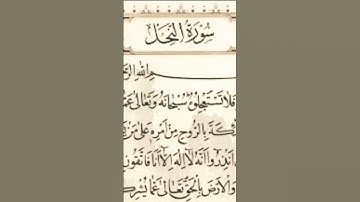 سُورَةُ النَّحْلِ
ـمِ اللهِ الرَّ
فَلَا تَسْتَعْجِلُوهُ سُبْحَانَهُ وَتَعَالَى عَمَّا
ئِكَةَ بِالرُّوحِ مِنْ أَمْرِهِ عَلَى مَنْ يَ
أَنْذِرُوا أَنَّهُ لَا إِلَهَ إِلَّا أَنَا فَاتَّقُونِ
وَالْأَرْضَ بِالْحَقِّ تَعَالَى عَمَّا يُشْرِكُ